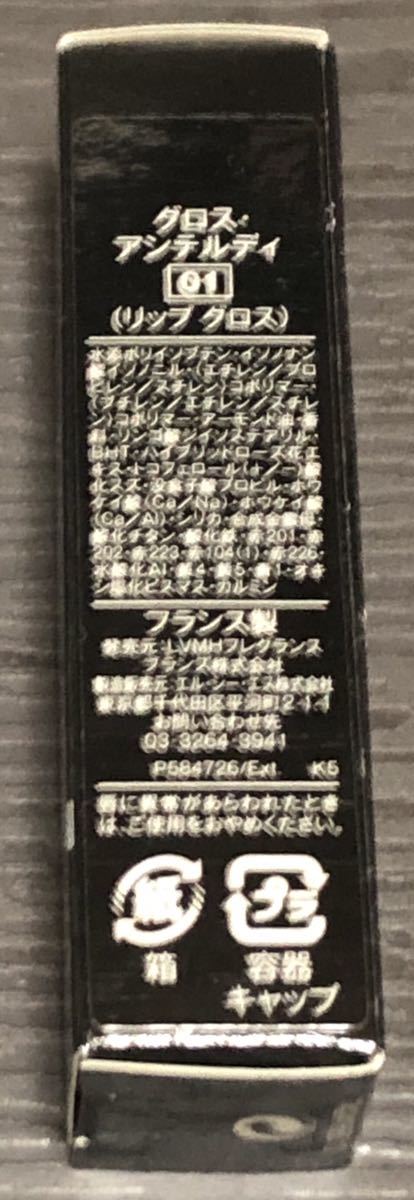 グロス・
アンテルディ
01
(リップ グロス)
水添ポリイソブテン・イソノナン
酸イソノニル・(エチレン/プロ
ピレン/スチレン)コポリマー・
(ブチレン/エチレン/スチレ
ン)コポリマー・アーモンド油・香
料・リンゴ酸ジイソステアリル・
BHT・ハイブリッドローズ花エ
キス・トコフェロール・(+/-)酸
化スズ・没食子酸プロピル・ホウ
ケイ酸(Ca/Na)・ホウケイ酸
(Ca/Al)・シリカ・合成金雲母・
酸化チタン・酸化鉄・赤201・赤
202・赤223・赤104(1)・赤226・
水酸化Al・黄4・黄5・青1・オキ
シ塩化ビスマス・カルミン
フランス製
発売元:LVMHフレグランス
ブランズ株式会社
製造販売元:エル・シー・エス株式会社
東京都千代田区平河町2-1-1
お問い合わせ先
03-3264-3941
P584726/Ext K5
唇に異常があらわれたとき
は、ご使用をおやめください。
紙 プラ
箱 容器
キャップ